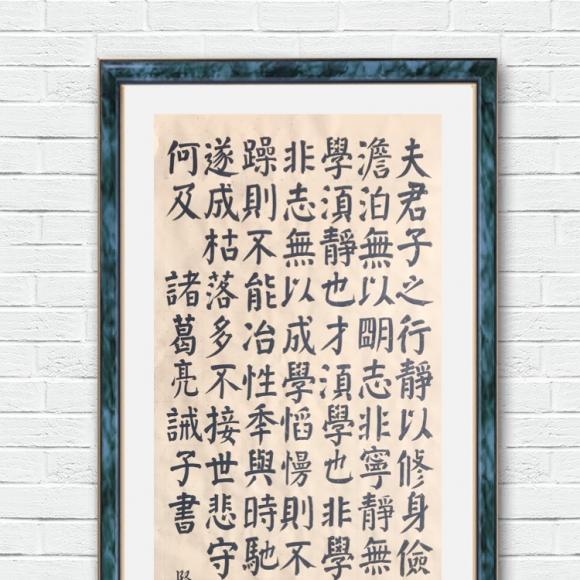 夫君子之行靜以修身儉
澹泊無以朙志非寧靜無
學湏靜也才湏學也非學
非志無以成學慆慢則不
躁則不能冶性秊與時馳
遂成枯落多不接世悲守
何及 諸葛亮誡子書